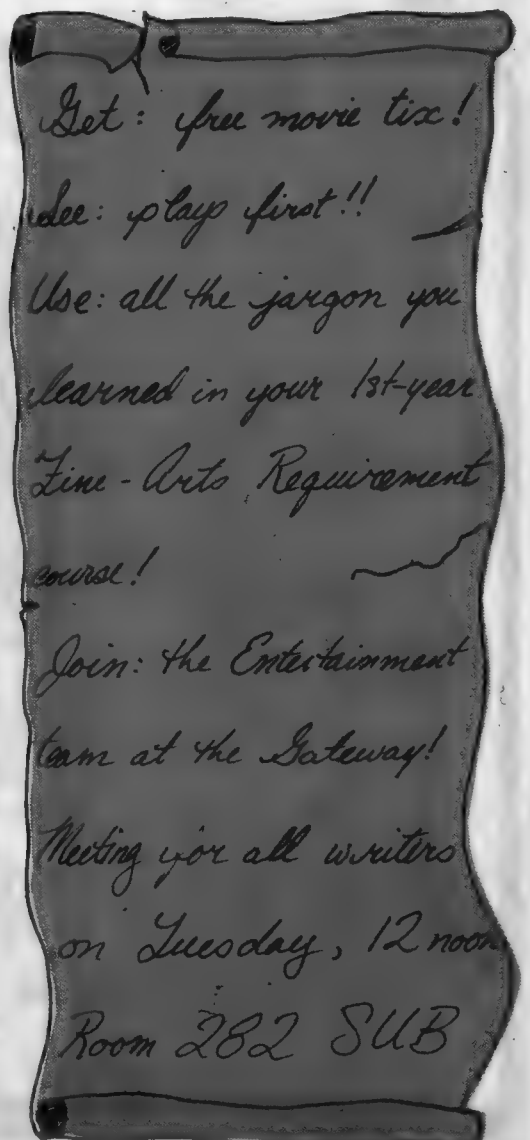 Get: free movie tix!
See: plays first!!
Use: all the jargon you
learned in your 1st-year
Fine-Arts Requirement
course!
Join: the Entertainment
team at the Gateway!
Meeting for all writers
on Tuesday, 12 noon
Room 282 SUB